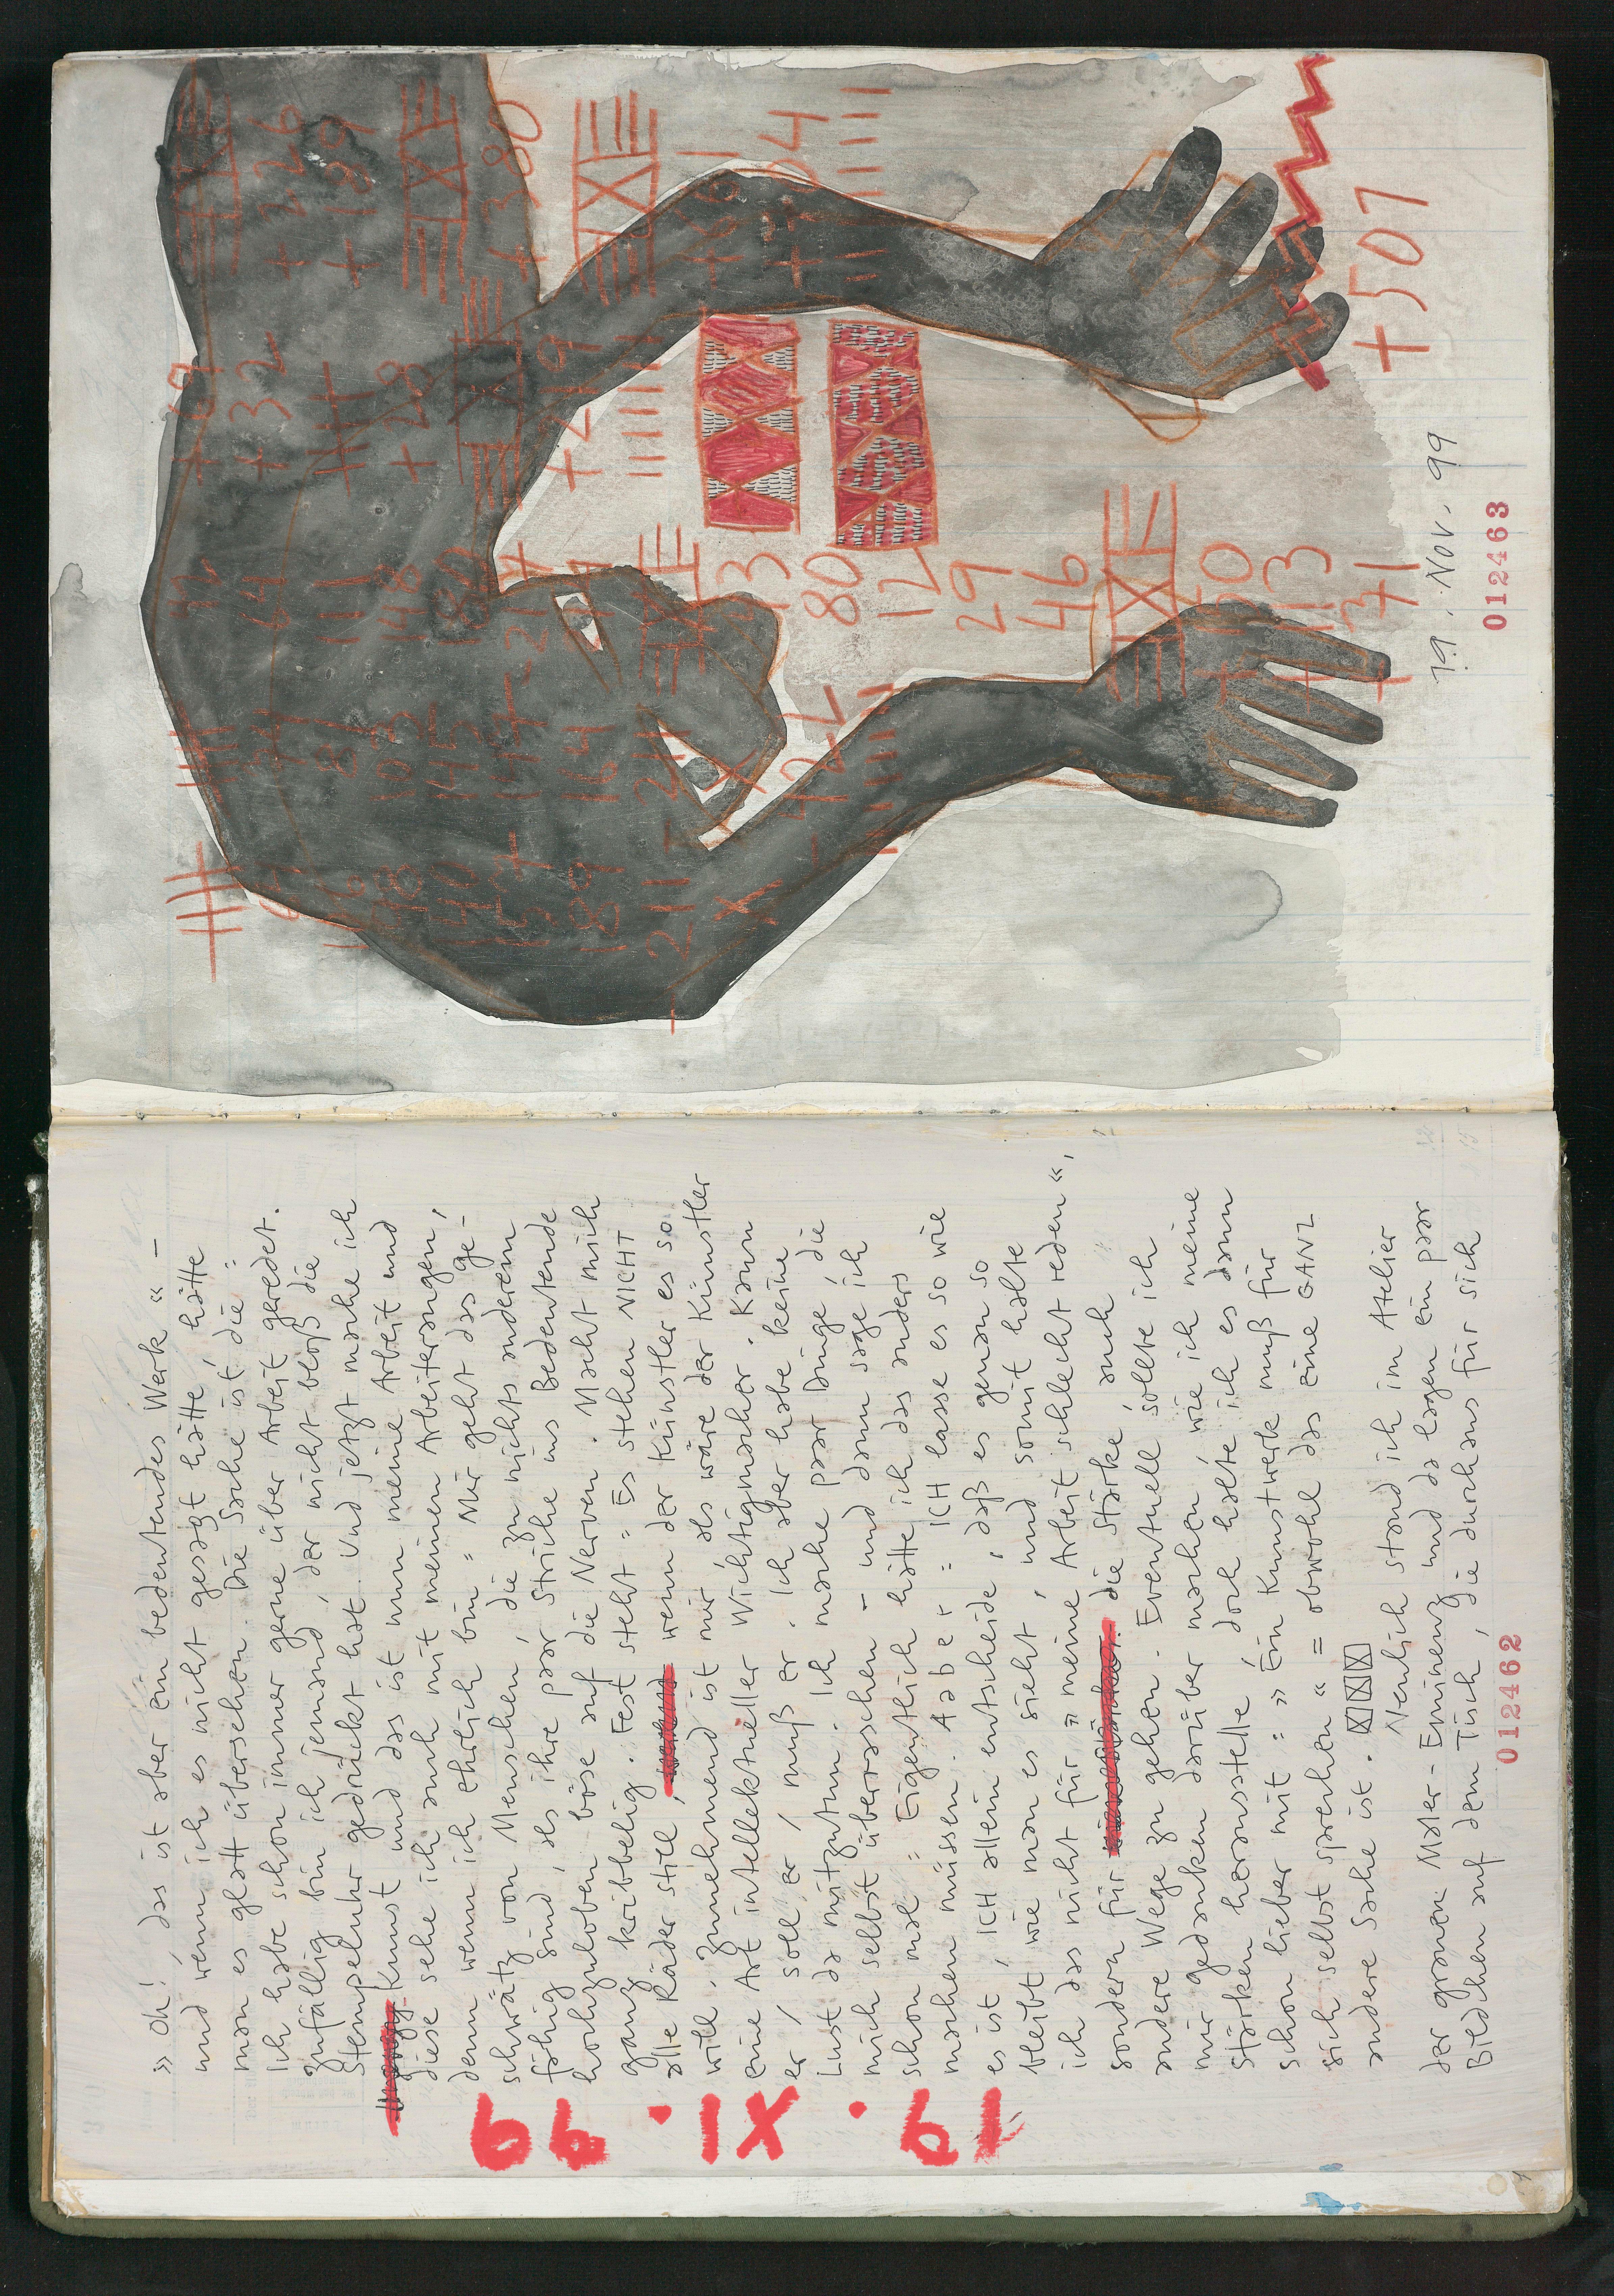 19. XI. 99
» Oh! das ist aber ein bedeutendes Werk « –
und wenn ich es nicht gesagt hätte, hätte
man es glatt übersehen. Die Sache ist die =
Ich habe schon immer gerne über Arbeit geredet.
Zufällig bin ich jemand, der nicht bloß die
Stempeluhr gedrückt hat. Und jetzt mache ich
Kunst und das ist nun meine Arbeit und
diese sehe ich auch mit meinen Arbeiteraugen,
denn wenn ich ehrlich bin = Mir geht das ge-
schwätz von Menschen, die zu nichts anderem
fähig sind, als ihre paar Striche ins Bedeutende
hochzuloben böse auf die Nerven. Macht mich
ganz kribbelig. Fest steht = Es stehen NICHT
alle Räder still, wenn der Künstler es so
will. Zunehmend ist mir, als wäre der Künstler
eine Art intellektueller Wichtigmacher. Kann
er / soll er / muß er. Ich aber habe keine
Lust da mitzutun. Ich mache paar Dinge, die
mich selbst überraschen – und dann sage ich
schon mal = Eigentlich hätte ich das anders
machen müssen. Aber = ICH lasse es so wie
es ist, ICH allein entscheide, daß es genau so
bleibt wie man es sieht, und somit halte
ich das nicht für » meine Arbeit schlecht reden «,
sondern für die Stärke auch
andere Wege zu gehen. Eventuell sollte ich
mir gedanken darüber machen, wie ich meine
Stärken herausstelle, doch halte ich es dann
schon lieber mit = » Ein Kunstwerk muß für
sich selbst sprechen « = obwohl das eine GANZ
andere Sache ist.
Neulich stand ich im Atelier
der grauen Maler-Eminenz und da lagen ein paar
Bildchen auf dem Tisch, die durchaus für sich
012462
+ 69
64 + 32 + 226
81 111 + 189
103 148 + 28
140 145 180
157 + 147 + - 214 + 380
189 164 + 219
211 211
- 422 80 + 34
12
29
46
+ 50
+ 113
+ 371
+ 507
19. Nov. 99
012463